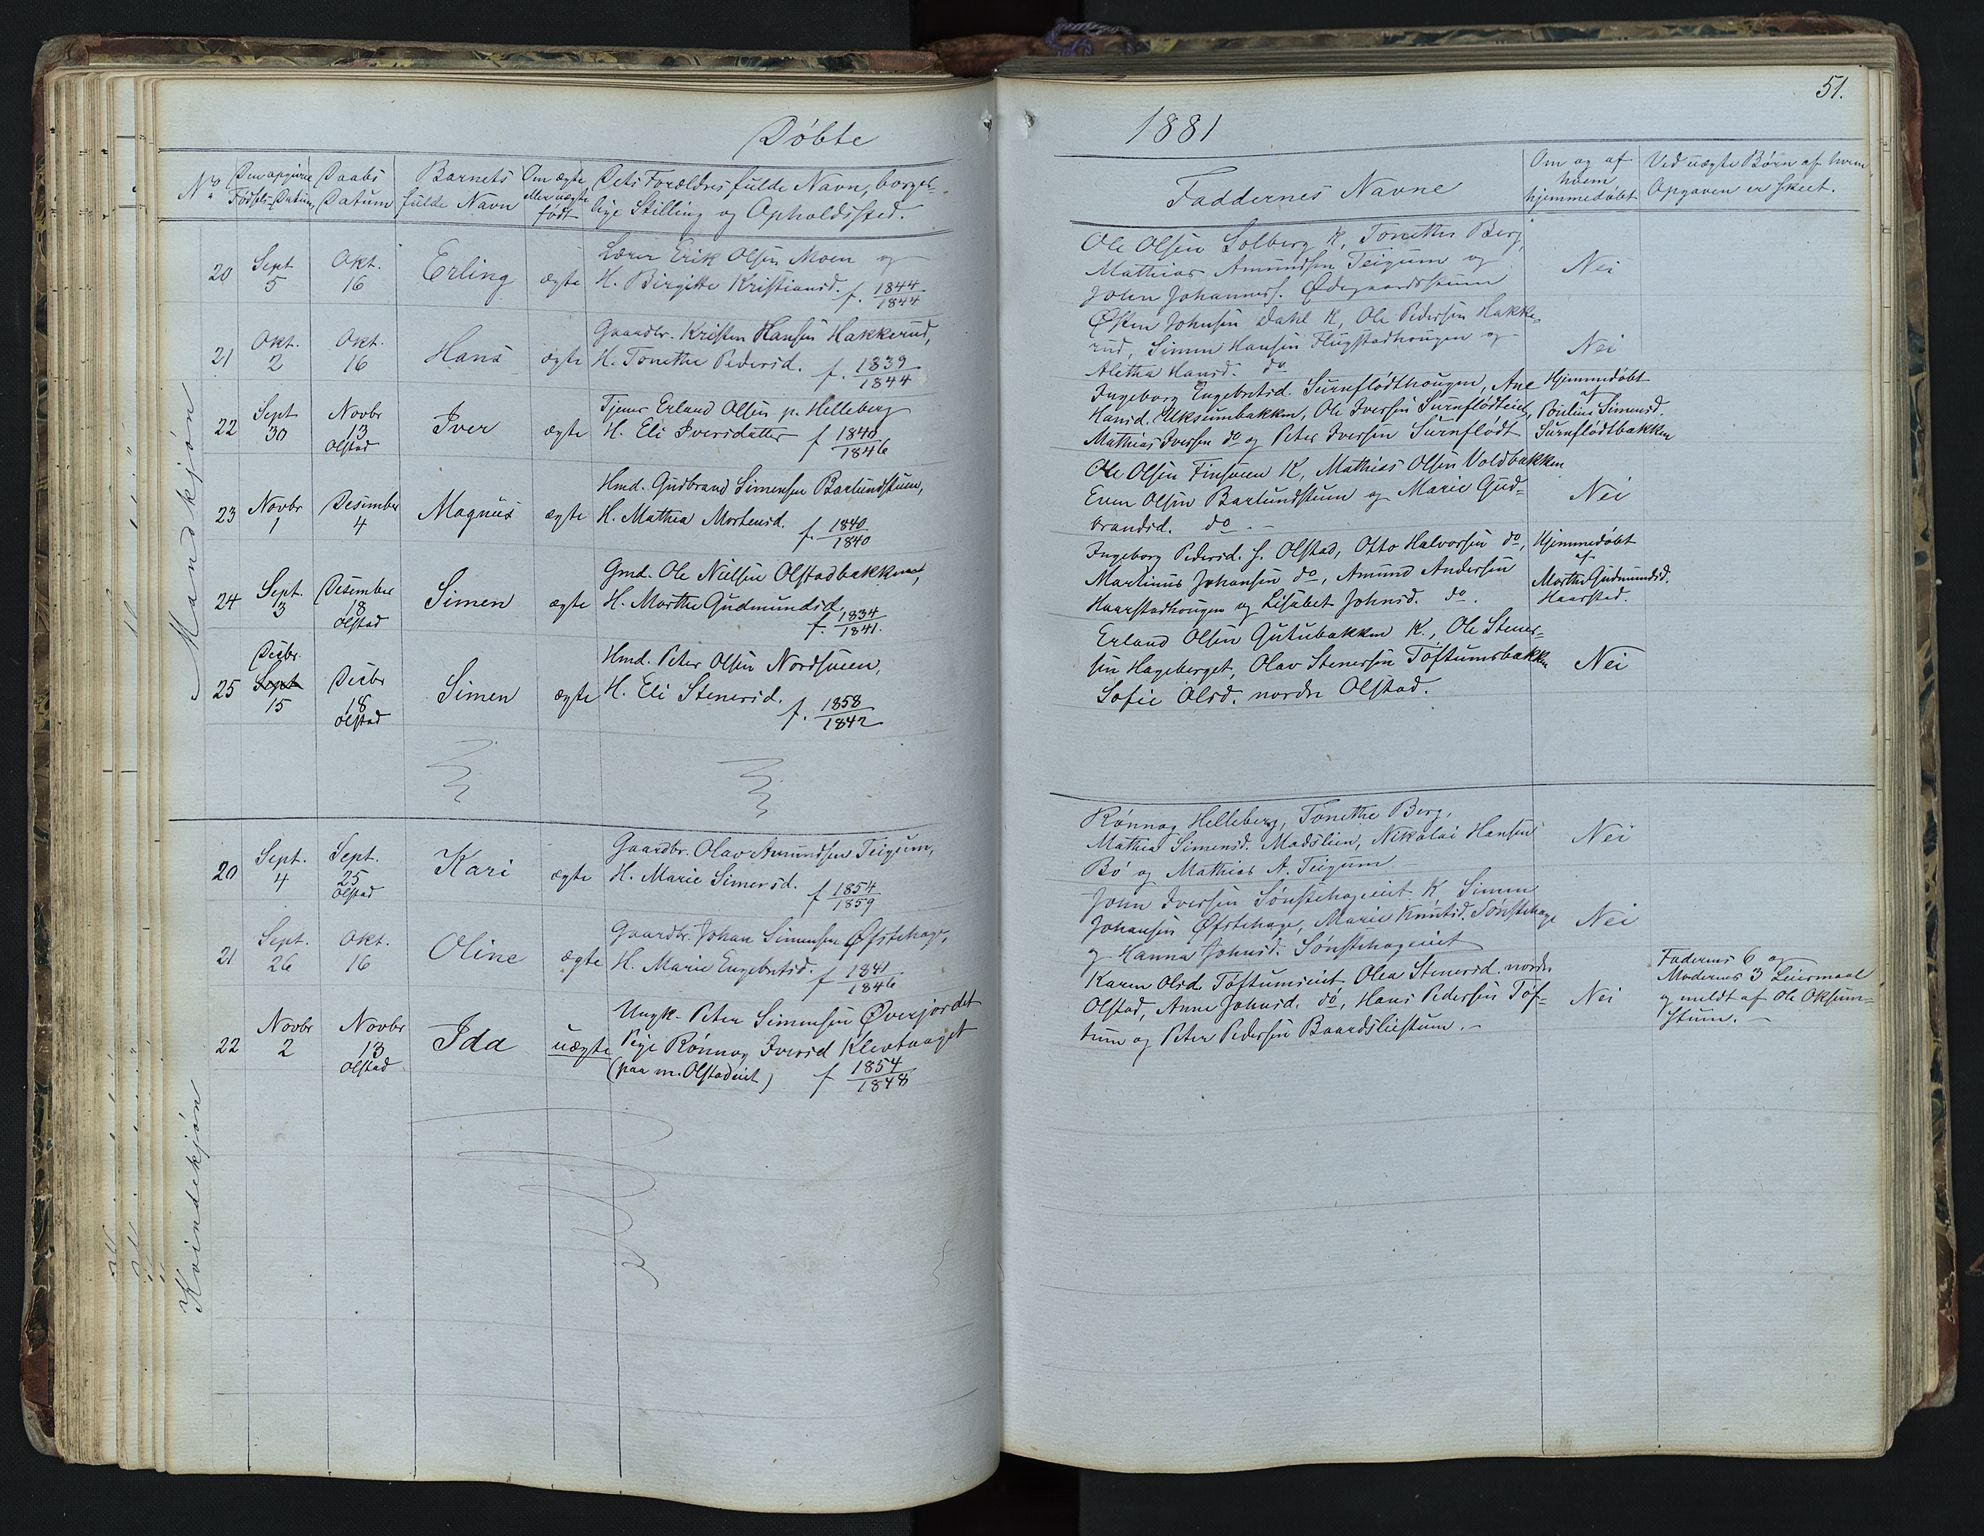 51.
Døbte 1881
No
Den opgivne Fødsels-Datum.
Daabs Datum
Barnets fulde Navn
Om ægte eller uægte født
Dets Forældres fulde Navn, borgerlige Stilling og Opholdssted.
Faddernes Navne
Om og af hvem hjemmedøbt
Ved uægte Børn af hvem Opgaven er skeet.
Mandkjøn
20 Sept 5 Okt. 16 Erling ægte
Lærer Erik Olsen Moen og
H. Birgitte Kristiansd. f. 1844/1844
Ole Olsen Solberg K, Tonethe Berg,
Mathias Amundsen Teigum og
John Johanness. Ødegaardsstuen
Nei
21 Okt. 2 Okt. 16 Hans ægte
Gaardbr. Kristen Hansen Hakkerud,
H. Tonethe Pedersd. f. 1839/1844
Østen Johnsen Dahl K, Ole Pedersen Hakke-
rud, Simen Hansen Flugstadhougen og
Alethe Hansd. do
Nei
22 Sept 30 Novbr 13 Olstad Iver ægte
Tjener Erland Olsen p. Helleberg
H. Eli Iversdatter f 1840/1846
Ingeborg Engebretsd. Surnflødthougen, Ane
Hansd. Uksumbakken, Ole Iversen Surnflødteiet,
Mathias Iversen do og Peter Iversen Surnflødt
Hjemmedøbt
af
Pouline Simensd.
Surnflødtbakken
23 Novbr 1 Desember 4 Magnus ægte
Hmd. Gudbrand Simensen Barlundstuen,
H. Mathea Mortensd. f. 1840/1840
Ole Olsen Finsveen K, Mathias Olsen Voldbakken
Even Olsen Barlundstuen og Marie Gud-
brandsd. do -
Nei
24 Sept. 3 Desember 18 Olstad Simen ægte
Gmd. Ole Nielsen Olstadbakken,
H. Marthe Gudmundsd. f. 1834/1841.
Ingeborg Pedersd. s. Olstad, Otto Halvorsen do,
Martinus Johansen do, Amund Andersen
Haarstadhougen og Lisabet Johnsd. do.
Hjemmedøbt
af
Marthe Gudmundsd.
Haarstad.
25 Desbr. Sept 15 Desbr 18 Olstad Simen ægte
Hmd. Peter Olsen Nordsveen,
H. Eli Stenersd. f. 1858/1842
Erland Olsen Gutubakken K., Ole Stener-
sen Hageberget, Olav Stenersen Toftumsbakken
Sofie Olsd. nordre Olstad.
Nei
Kvindekjøn
20 Sept. 4 Sept. 25 Olstad Kari ægte
Gaardbr. Olav Amundsen Teigum,
H. Marie Simensd. f 1854/1859
Rønnog Helleberg, Tonethe Berg,
Mathea Simensd. Madslien, Nikolai Hansen
Bø og Mathias A. Teigum
Nei
21 Sept. 26 Okt. 16 Oline ægte
Gaardbr. Johan Simensen Øfstehage,
H. Marie Engebretsd. f 1841/1846
John Iversen Sønstehageeiet K Simen
Johansen Øfstehage, Marie Knutsd. Sønstehage
og Hanna Johnsd. Sønstehageeiet
Nei
22 Novbr 2 Novbr 13 Olstad Ida uægte
Ungk. Peter Simensen Øverjordet
Pige Rønnog Iversd Klevtraaget
(paa m. Olstadeiet) f 1854/1848
Karen Olsd. Toftumseiet Olea Stenersd. nordre
Olstad, Anne Johnsd. do, Hans Pedersen Tof-
tum og Peter Pedersen Baardsliestuen. -
Nei
Faderens 6 og
Moderens 3 Leiermaal
og meldt af Ole Oksum-
stuen. -